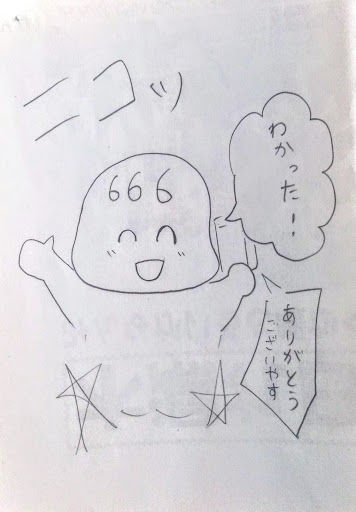 ニコッ
666
わかった！
ありがとう
ございやす